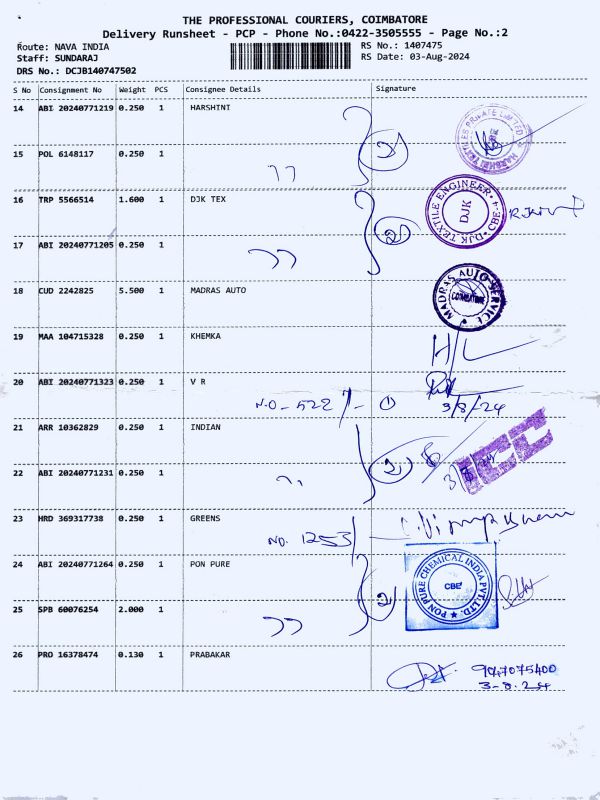 THE PROFESSIONAL COURIERS, COIMBATORE
Delivery Runsheet - PCP - Phone No.:0422-3505555 - Page No.:2
Route: NAVA INDIA
RS No.: 1407475
Staff: SUNDARAJ
RS Date: 03-Aug-2024
DRS No.: DCJB140747502
S No Consignment No Weight PCS Consignee Details Signature
14 ABI 20240771219 0.250 1 HARSHINI
2
15 POL 6148117 0.250 1 ,,
16 TRP 5566514 1.600 1 DJK TEX
DJK TEXTILE ENGINEER CBE-4
DJK
2
17 ABI 20240771205 0.250 1 ,,
18 CUD 2242825 5.500 1 MADRAS AUTO
MADRAS AUTO SERVICE
COIMBATORE
19 MAA 104715328 0.250 1 KHEMKA
20 ABI 20240771323 0.250 1 V R
NO - 522 - 1
3/8/24
21 ARR 10362829 0.250 1 INDIAN
2
22 ABI 20240771231 0.250 1 ,,
23 HRD 369317738 0.250 1 GREENS
NO. 1253
24 ABI 20240771264 0.250 1 PON PURE
PON PURE CHEMICAL INDIA PVT. LTD.
CBE
2
25 SPB 60076254 2.000 1 ,,
26 PRO 16378474 0.130 1 PRABAKAR
9047075400
3-8.24